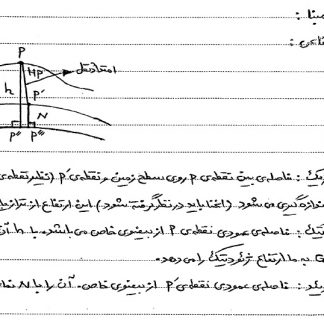 مبنا :
اعی :
P
HP
امتداد ثقل
h
P'
N
P" P‴
یک : فاصله‌ی بین نقطه‌ی P روی سطح زمین و نقطه‌ی P' (نظیر نقطه‌ی
اندازه‌گیری می‌شود (اغنا باید در نظر گرفته شود) این ارتفاع از تراز
یک : فاصله‌ی عمودی نقطه‌ی P از بیضوی خاص می‌باشد. با h آن
G به ما ارتفاع ژئودتیک را می‌دهد.
ئید : فاصله‌ی عمودی نقطه‌ی P' از بیضوی خاص. آن را با N نما